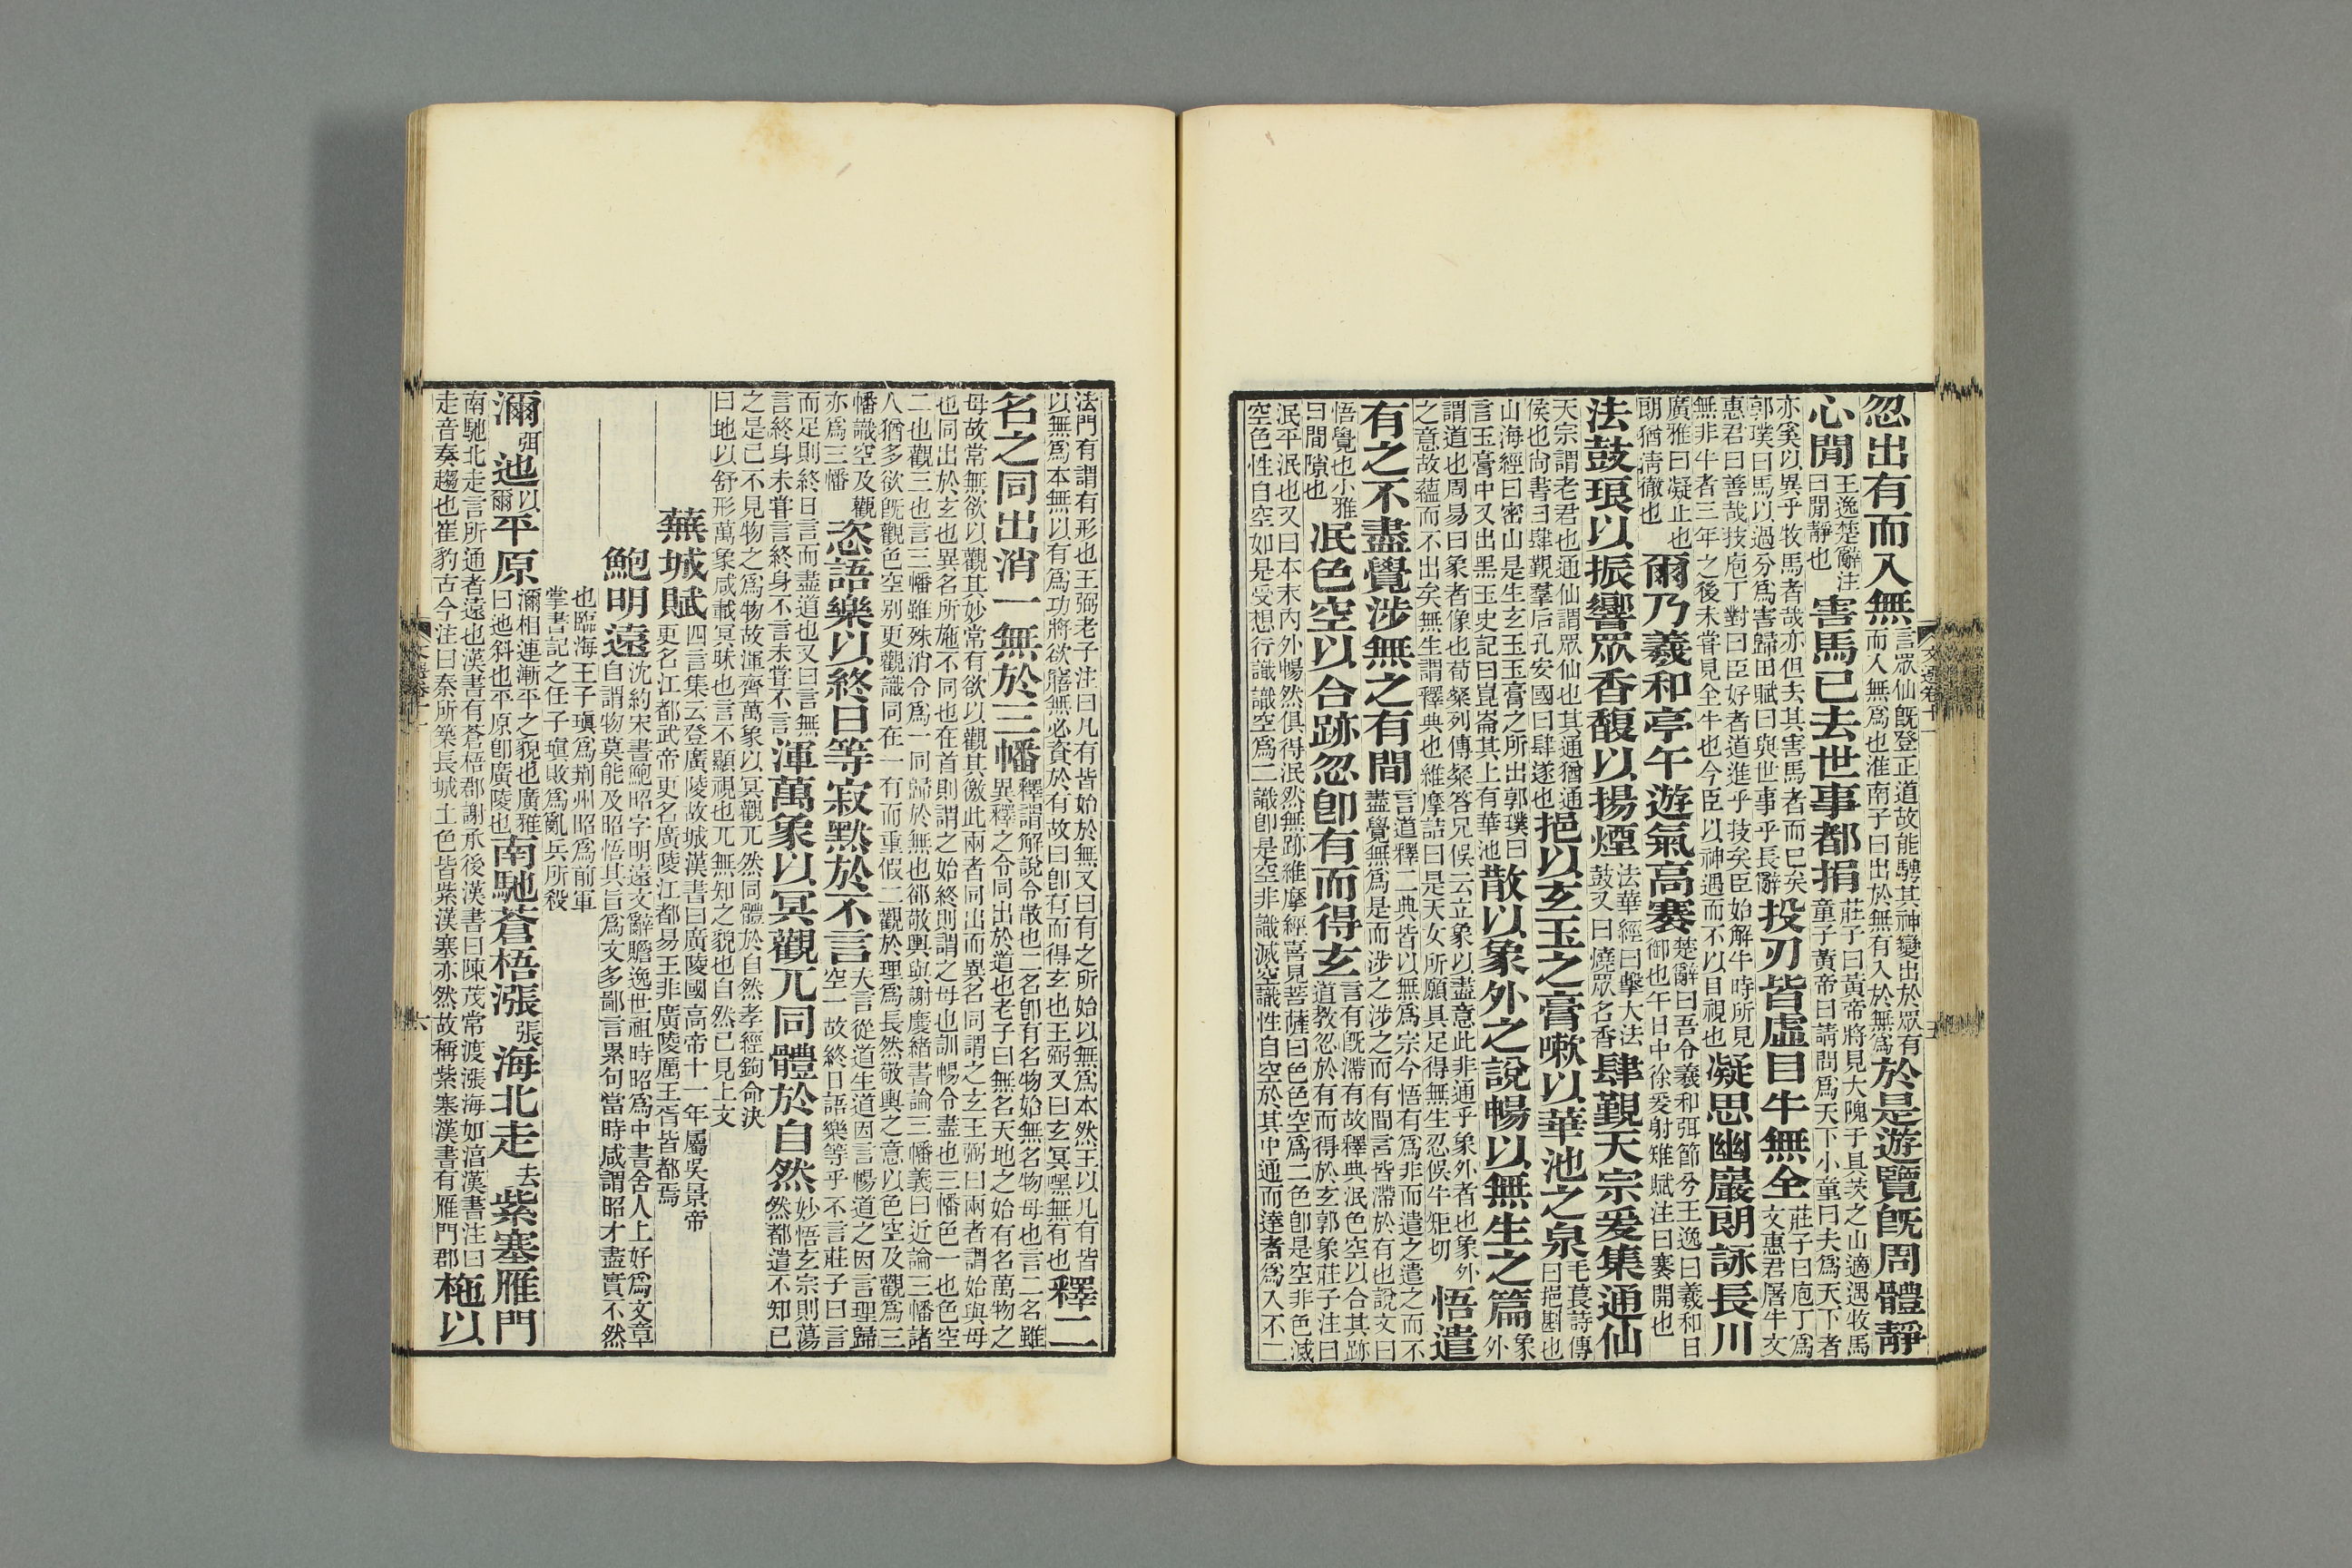 忽出有而入無言眾仙旣登正道故能騁其神變出於眾有而入無爲也淮南子曰出於無有入於無爲於是遊覽旣周體靜
心閒王逸楚辭注曰閒靜也害馬已去世事都捐莊子曰黃帝將見大隗子具茨之山適遇牧馬童子黃帝曰請問爲天下小童曰夫爲天下者
亦奚以異乎牧馬者哉亦但去其害馬者而已矣郭璞曰馬以過分爲害歸田賦曰與世事乎長辭投刃皆虛目牛無全莊子曰庖丁爲文惠君屠牛文
惠君曰善哉技庖丁對曰臣好者道進乎技矣臣始解牛時所見無非牛者三年之後未嘗見全牛也今臣以神遇而不以目視也凝思幽巖朗詠長川
廣雅曰凝止也朗猶淸徹也爾乃羲和亭午遊氣高褰楚辭曰吾令羲和弭節兮王逸曰羲和日御也午日中徐爰射雉賦注曰褰開也
法鼓琅以振響眾香馥以揚煙法華經曰擊大法鼓又曰燒眾名香肆覲天宗爰集通仙
天宗謂老君也通仙謂眾仙也其通猶通侯也尚書曰肆覲羣后孔安國曰肆遂也挹以玄玉之膏嗽以華池之泉毛萇詩傳曰挹斟也
山海經曰密山是生玄玉玉膏之所出郭璞曰言玉膏中又出黑玉史記曰崑崙其上有華池散以象外之說暢以無生之篇象外
謂道也周易曰象者像也荀粲列傳粲答兄俁云立象以盡意此非通乎象外者也象外之意故蘊而不出矣無生謂釋典也維摩詰曰是天女所願具足得無生忍俁牛矩切悟遣
有之不盡覺涉無之有間言道釋二典皆以無爲宗今悟有爲非而遣之遣之而不盡覺無爲是而涉之涉之而有間言皆滯於有也說文曰
悟覺也小雅曰間隙也泯色空以合跡忽卽有而得玄言有旣滯有故釋典泯色空以合其跡道教忽於有而得於玄郭象莊子注曰
泯平泯也又曰本末內外暢然俱得泯然無跡維摩經喜見菩薩曰色色空爲二色卽是空非色滅空色性自空如是受想行識識空爲二識卽是空非識滅空識性自空於其中通而達者爲入不二
文選卷十一
五
法門有謂有形也王弼老子注曰凡有皆始於無又曰有之所始以無爲本然王以凡有皆以無爲本無以有爲功將欲寤無必資於有故曰卽有而得玄也王弼又曰玄冥嘿無有也釋二
名之同出消一無於三幡釋謂解說令散也二名卽有名物始無名物母也言二名雖異釋之令同出於道也老子曰無名天地之始有名萬物之
母故常無欲以觀其妙常有欲以觀其徼此兩者同出而異名同謂之玄王弼曰兩者謂始與母也同出於玄也異名所施不同也在首則謂之始終則謂之母也訓暢令盡也三幡色一也色空
二也觀三也言三幡雖殊消令爲一同歸於無也郤敬輿與謝慶緒書論三幡義曰近論三幡諸人猶多欲旣觀色空别更觀識同在一有而重假二觀於理爲長然敬輿之意以色空及觀爲三
幡識空及觀亦爲三幡恣語樂以終日等寂默於不言夫言從道生道因言暢道之因言理歸空一故終日語樂等乎不言莊子曰言
而足則終日言而盡道也又曰言無言終身未嘗言終身不言未嘗不言渾萬象以冥觀兀同體於自然妙悟玄宗則蕩然都遣不知已
之是已不見物之爲物故渾齊萬象以冥觀兀然同體於自然孝經鉤命決曰地以舒形萬象咸載冥昧也言不顯視也兀無知之貌也自然已見上文
蕪城賦四言集云登廣陵故城漢書曰廣陵國高帝十一年屬吳景帝更名江都武帝更名廣陵江都易王非廣陵厲王胥皆都焉
鮑明遠沈約宋書鮑昭字明遠文辭贍逸世祖時昭爲中書舍人上好爲文章自謂物莫能及昭悟其旨爲文多鄙言累句當時咸謂昭才盡實不然
也臨海王子瑱爲荆州昭爲前軍掌書記之任子瑱敗爲亂兵所殺
瀰弭迆以爾平原瀰相連漸平之貌也廣雅曰迆斜也平原卽廣陵也南馳蒼梧漲張海北走去紫塞雁門
南馳北走言所通者遠也漢書有蒼梧郡謝承後漢書曰陳茂常渡漲海如淳漢書注曰走音奏趨也崔豹古今注曰秦所築長城土色皆紫漢塞亦然故稱紫塞漢書有雁門郡柂以
文選卷十一
六